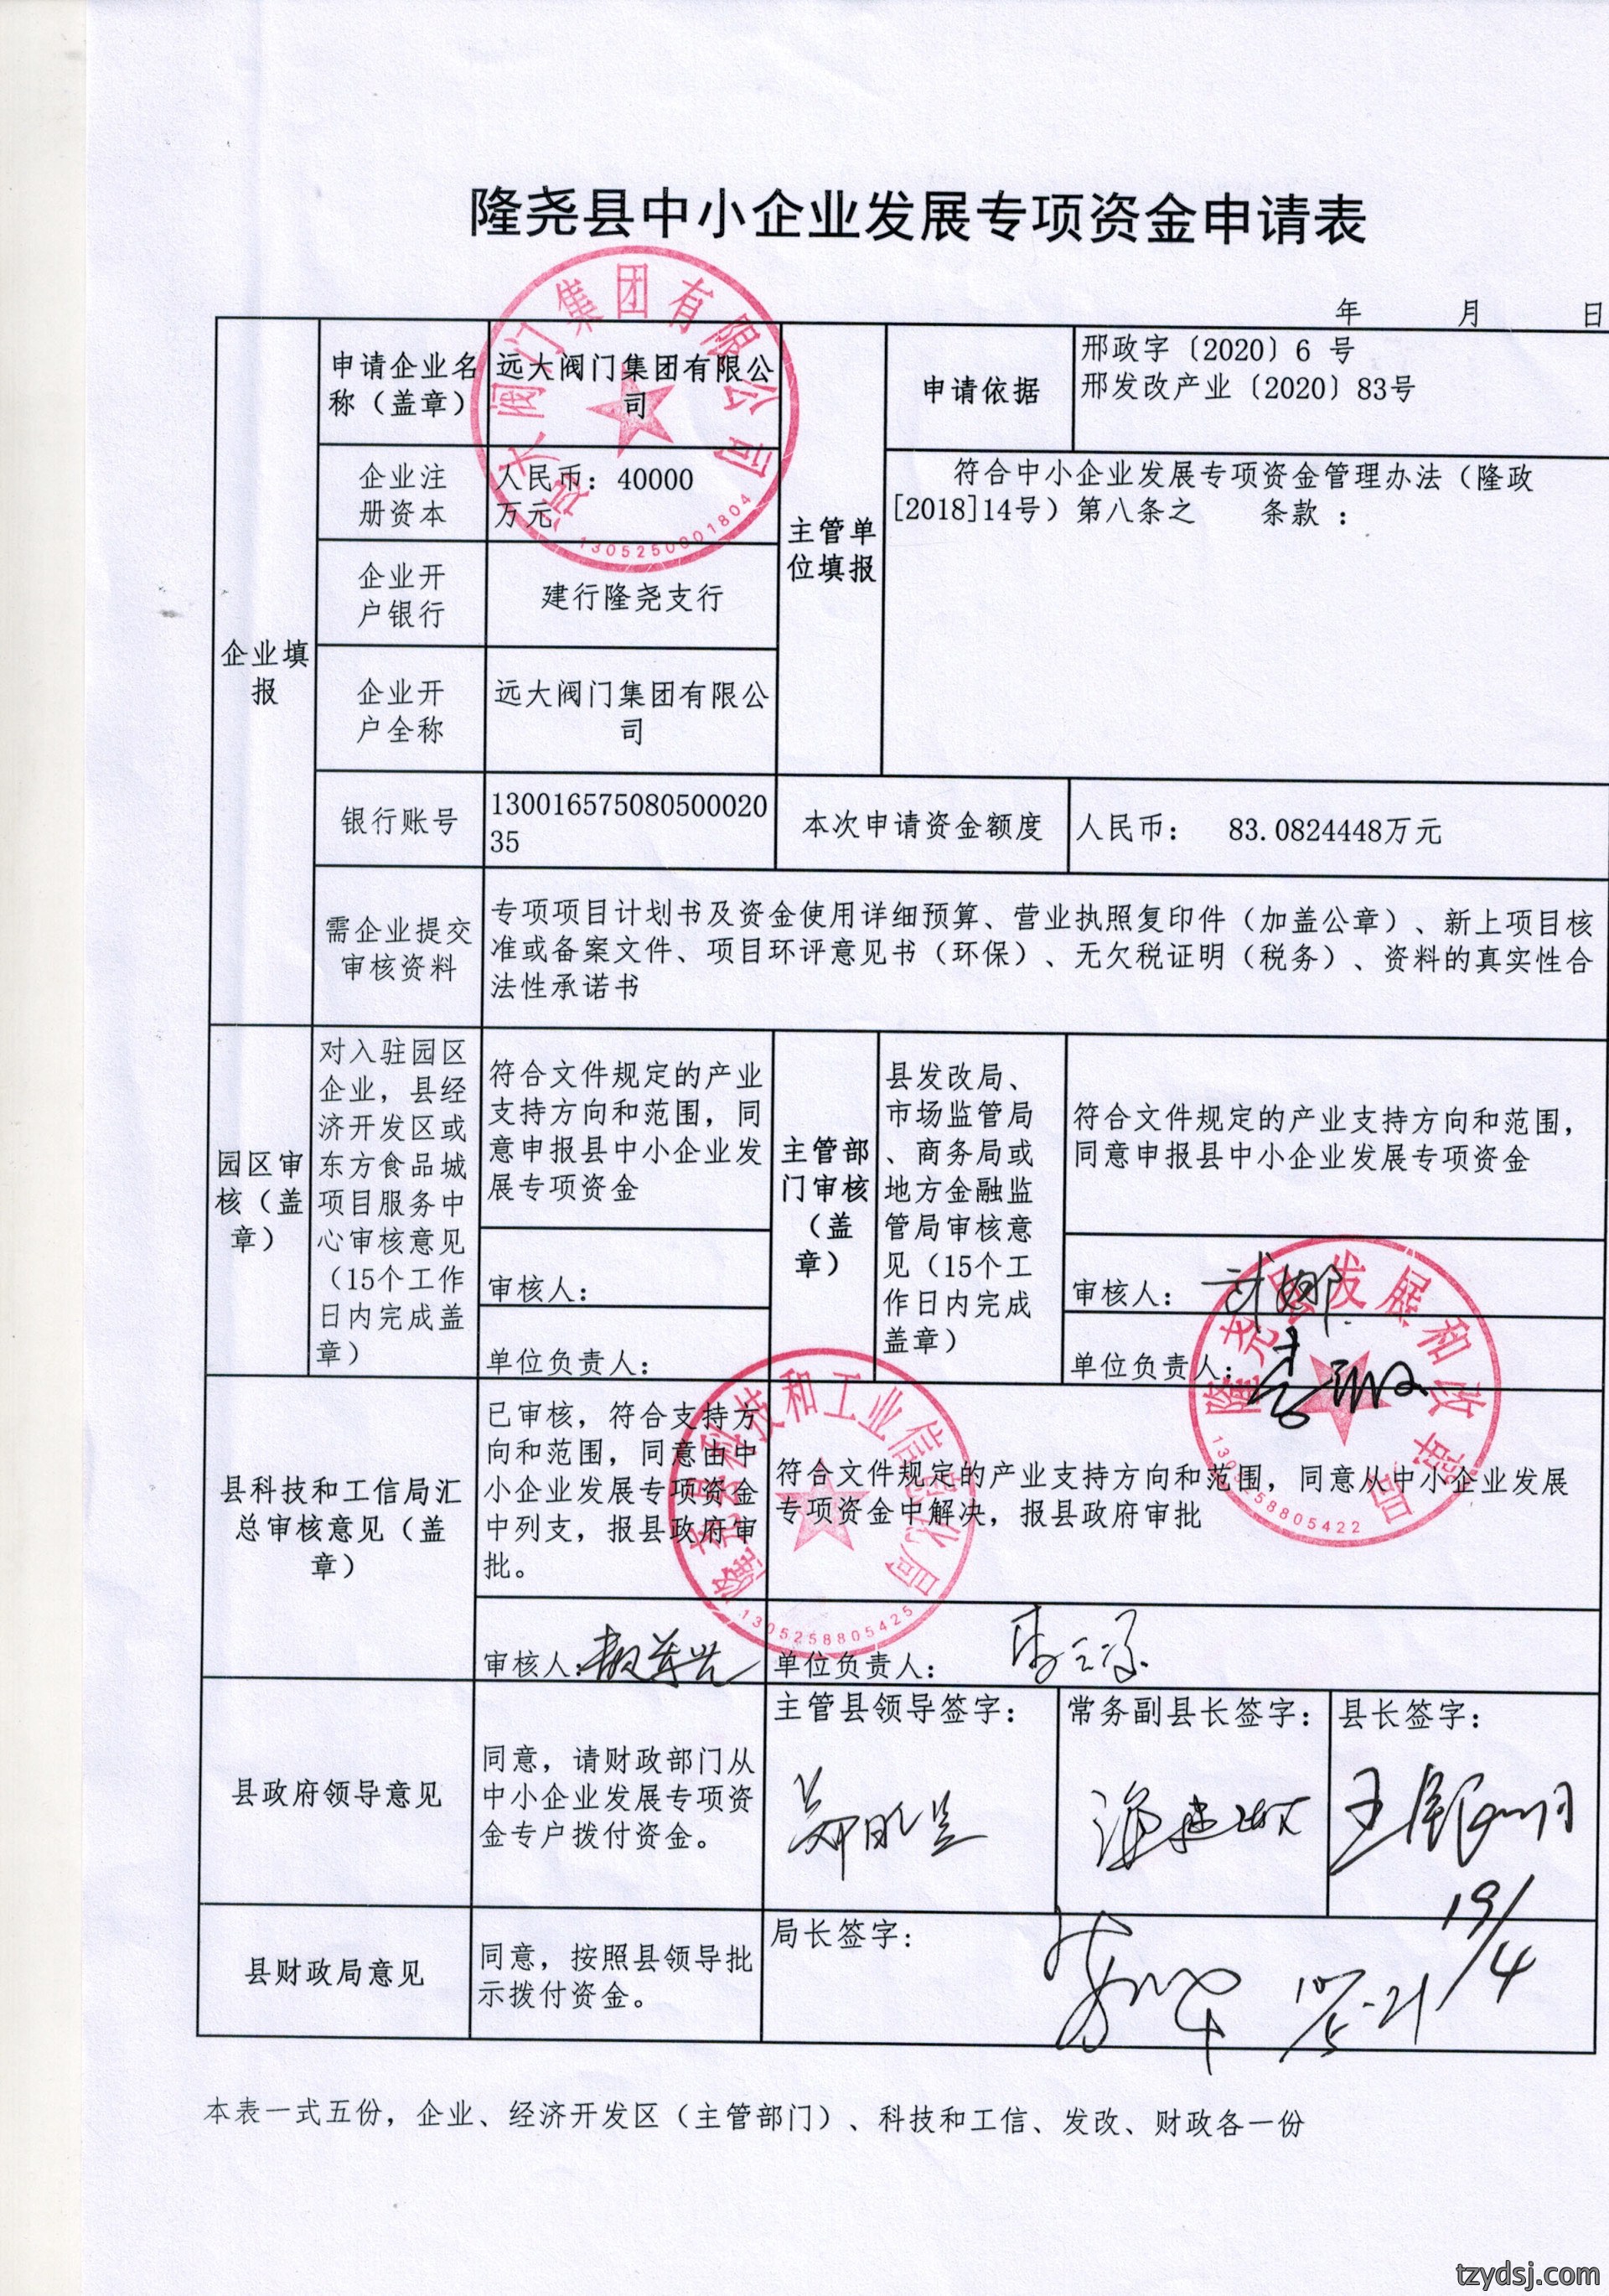 隆尧县中小企业发展专项资金申请表
年 月 日
企业填
报
申请企业名
称（盖章）
远大阀门集团有限公
司
主管单
位填报
申请依据
邢政字〔2020〕6 号
邢发改产业〔2020〕83号
企业注
册资本
人民币：40000
万元
符合中小企业发展专项资金管理办法（隆政
[2018]14号）第八条之 条款 ：
企业开
户银行
建行隆尧支行
企业开
户全称
远大阀门集团有限公
司
银行账号
130016575080500020
35
本次申请资金额度
人民币： 83.0824448万元
需企业提交
审核资料
专项项目计划书及资金使用详细预算、营业执照复印件（加盖公章）、新上项目核
准或备案文件、项目环评意见书（环保）、无欠税证明（税务）、资料的真实性合
法性承诺书
园区审
核（盖
章）
对入驻园区
企业，县经
济开发区或
东方食品城
项目服务中
心审核意见
（15个工作
日内完成盖
章）
符合文件规定的产业
支持方向和范围，同
意申报县中小企业发
展专项资金
审核人：
单位负责人：
主管部
门审核
（盖
章）
县发改局、
市场监管局
、商务局或
地方金融监
管局审核意
见（15个工
作日内完成
盖章）
符合文件规定的产业支持方向和范围，
同意申报县中小企业发展专项资金
审核人：
单位负责人：
县科技和工信局汇
总审核意见（盖
章）
已审核，符合支持方
向和范围，同意由中
小企业发展专项资金
中列支，报县政府审
批。
符合文件规定的产业支持方向和范围，同意从中小企业发展
专项资金中解决，报县政府审批
审核人：
单位负责人：
县政府领导意见
同意，请财政部门从
中小企业发展专项资
金专户拨付资金。
主管县领导签字：
常务副县长签字：
县长签字：
19/4
县财政局意见
同意，按照县领导批
示拨付资金。
局长签字：
本表一式五份，企业、经济开发区（主管部门）、科技和工信、发改、财政各一份
远大阀门集团有限公司
1305250001804
隆尧县发展和改革局
1305258805422
隆尧县科技和工业信息化局
1305258805425
tzydsj.com